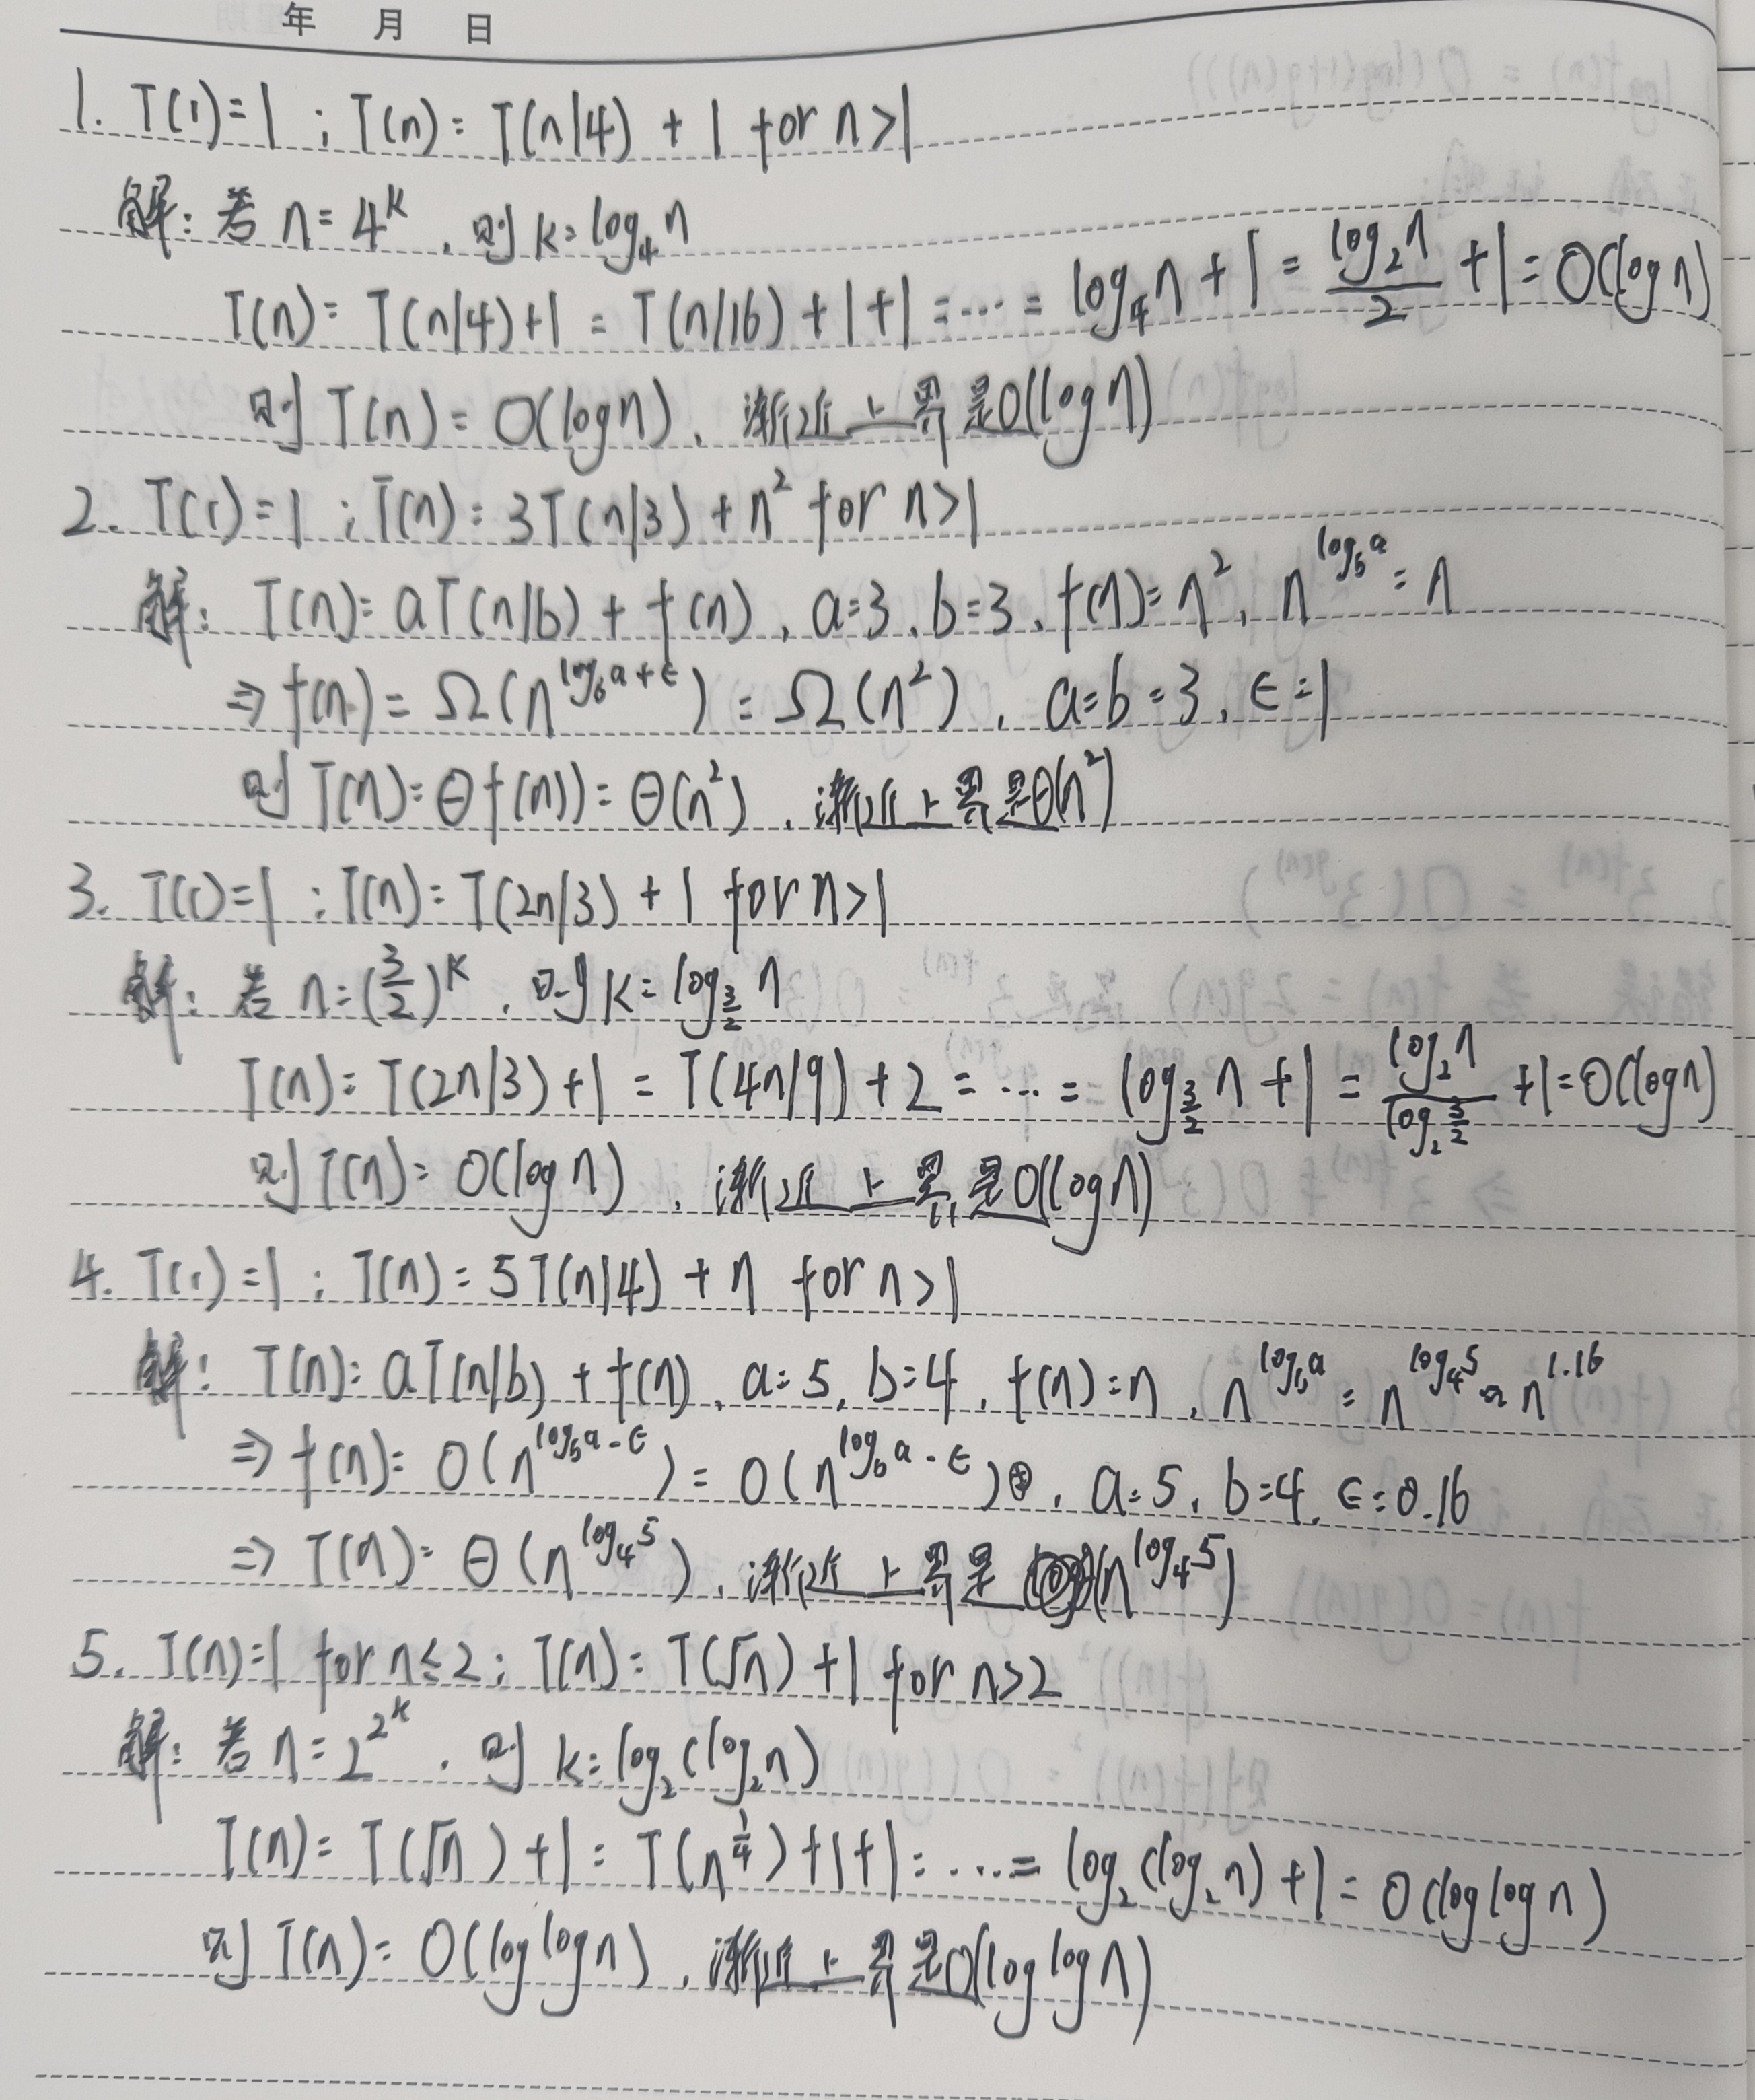 年 月 日
1. T(1)=1 ; T(n)= T(n/4) + 1 for n>1
解: 若 n=4^k , 则 k=log₄n
T(n)= T(n/4)+1 = T(n/16)+1+1 =⋯= log₄n+1 = log₂n/2 +1 = O(logn)
则 T(n)= O(logn), 渐近上界是O(logn)
2. T(1)=1 ; T(n)= 3T(n/3) + n² for n>1
解: T(n)= aT(n/b) + f(n), a=3, b=3, f(n)=n², n^(log_b a) = n
⇒ f(n) = Ω(n^(log_b a+ε)) = Ω(n²), a=b=3, ε=1
则 T(n)= Θf(n))= Θ(n²), 渐近上界是Θ(n²)
3. T(1)=1 ; T(n)= T(2n/3) + 1 for n>1
解: 若 n=(3/2)^k , 则 k=log_(3/2) n
T(n)= T(2n/3)+1 = T(4n/9)+2 = ⋯ = log_(3/2) n +1 = log₂n/log₂(3/2) +1=O(logn)
则 T(n)= O(logn), 渐近上界是O(logn)
4. T(1)=1 ; T(n)= 5T(n/4) + n for n>1
解: T(n)= aT(n/b) + f(n), a=5, b=4, f(n)=n, n^(log_b a) = n^(log₄5) ≈ n^1.16
⇒ f(n)= O(n^(log_b a-ε)) = O(n^(log_b a-ε)), a=5, b=4, ε=0.16
⇒ T(n)= Θ(n^(log₄5)), 渐近上界是 (n^(log₄5))
5. T(n)=1 for n≤2; T(n)= T(√n)+1 for n>2
解: 若 n=2^(2^k) , 则 k=log₂(log₂n)
T(n)= T(√n)+1= T(n^(1/4))+1+1= ⋯= log₂(log₂n)+1 = O(loglogn)
则 T(n)= O(loglogn), 渐近上界是O(loglogn)